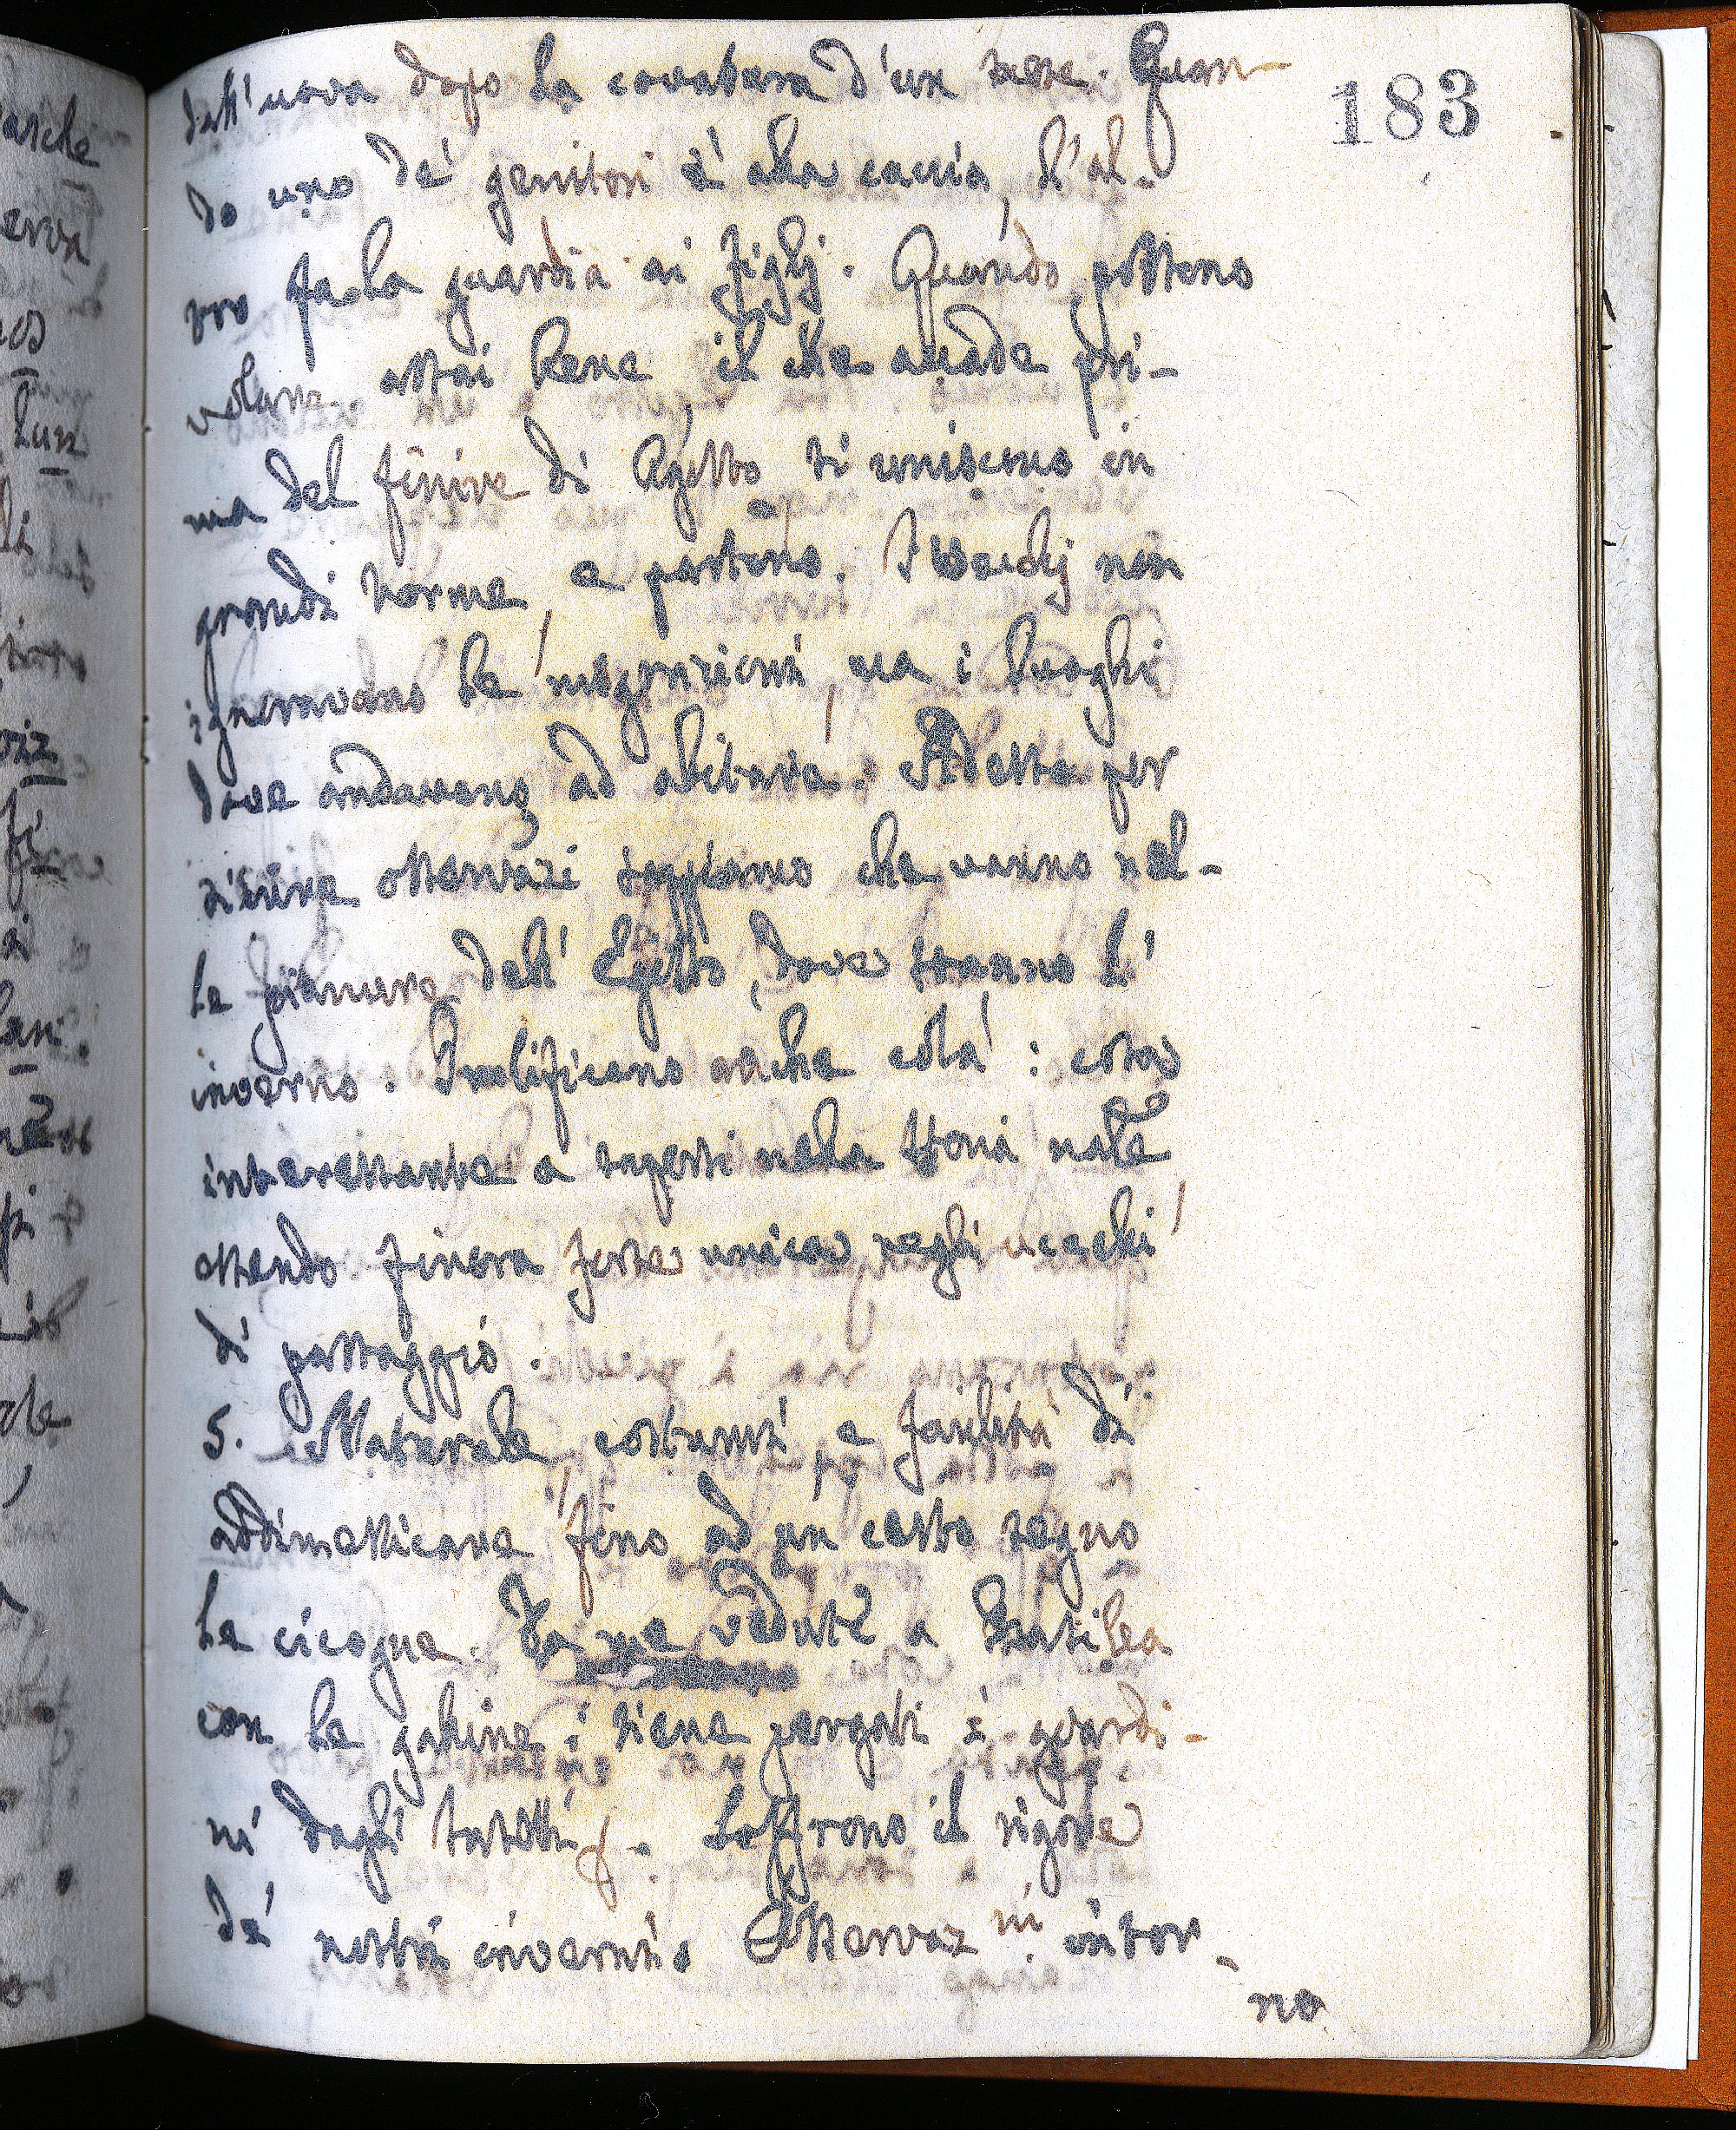 183
dell'uova dopo la covatura d'un mese. Quan-
do uno de' genitori è alla caccia, l'al-
tro fa la guardia ai figlj. Quando possono
volare assai bene, il che accade pri-
ma del finire di Agosto si uniscono in
grandi torme, e partono. I vecchj non
ignoravano le migrazioni, ma i luoghi
dove andavano ad abitare. Adesso per
sicure osservazi sappiamo che vanno nel-
le pianure dell'Egitto, dove stanno l'
inverno. Prolificano anche colà: cosa
interessante a sapersi nella storia nat.e
essendo finora forse unica negli uccelli
di passaggio.
5. Naturale, costumi, e facilità di
addimesticare fino ad un certo segno
le cicogne. Da me vedute a
con le galline: tiene purgati i giardi-
ni dagli insetti. Soffrono il rigore
de' nostri inverni. Osservaz.ni intor-
no